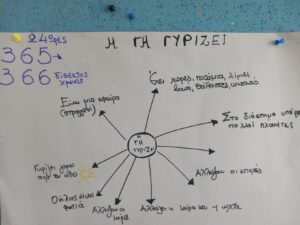 24 ώρες
365→
366 δίσεκτος
χρόνος
Η ΓΗ ΓΥΡΙΖΕΙ
Έχει χώρες, ποτάμια, λίμνες
βουνά, θάλασσες, νησιά
Είναι μια σφαίρα
(στρογγυλή)
Στο διάστημα υπάρ
πολλοί πλανήτες
Η
ΓΗ
ΓΥΡΙΖΕΙ
Γυρίζει γύρω
από τον ήλιο
Αλλάζουν οι εποχές
Ο ήλιος είναι
φωτιά
Αλλάζουν οι
μέρες
Αλλάζει η μέρα και η νύχτα